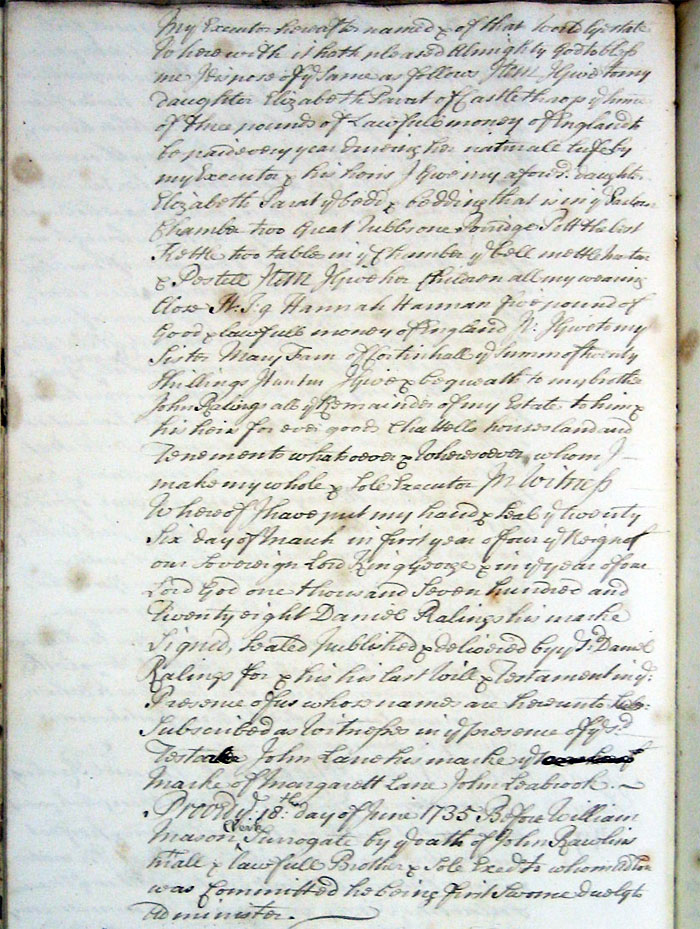 My Executor hereafter named & of that worldly estate
Where with it hath pleased Allmighty God to bless
me I dispose of ye same as follows Item I give to my
daughter Elizabeth Parat of Castlethrop ye Summe
of three pounds of Lawfull money of England to
be paid every year during her naturall life by
my Executor & his heirs I give my afores.d daughter
Elizabeth Parat ye bedd & bedding that is in ye Parlour
Chamber two Great Tubbs one Porridge Pott the best
Kettle two table in ye Chamber ye bell mettle
& Pestell Item I give her Children all my wearing
Close It: I g Hannah Harman five pound of
Good & lawfull money of England It: I give to my
Sister Mary Farn of ye Summ of twenty
Shillings I give & bequeath to my brother
John Ralings all ye Remainder of my Estate to him &
his heirs for ever good Chattells houses land and
Tenements whatsoever & Wheresoever whom I
make my whole & Sole Executor In Witness
Whereof I have put my hand & Seal ye twenty
Six day of March in first year of our ye Reign of
our Sovereign Lord King George & in ye year of our
Lord God one thousand Seven hundred and
Twenty eight Daniel Ralings his marke
Signed, Sealed Published & delivered by ye s.d Daniel
Ralings for & his his last Will & Testament in ye
Presence of us whose names are hereunto Sub-
Subscribed as Witnesses in ye presence of ye s.d
Testator John Lane his marke ye
Marke of Margarett Lane John Seabrook.
Proved ye 18th: day of June 1735 Before William
Mason Clerk Surrogate by ye oath of John Rawlins
& lawfull Brother & Sole Exec.r to whom Adm.on
was Committed he being first Sworne duely to
Administer.